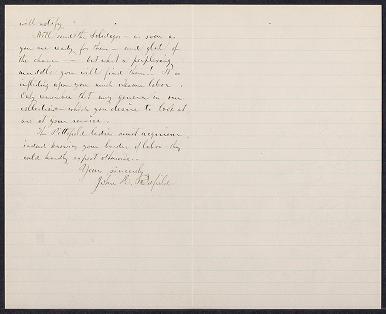 will notify.
Will send the Solidagos — as soon as
you are ready for them — and glad of
the chance — but what a perplexing
muddle you will find them! It is
inflicting upon you much labor.
Only remember that any genera in our
collection which you desire to look at
are at your service.
The Pittsfield ladies must acquiesce
indeed knowing your burden of labor they
could hardly expect otherwise.
Yours sincerely
John H. Redfield